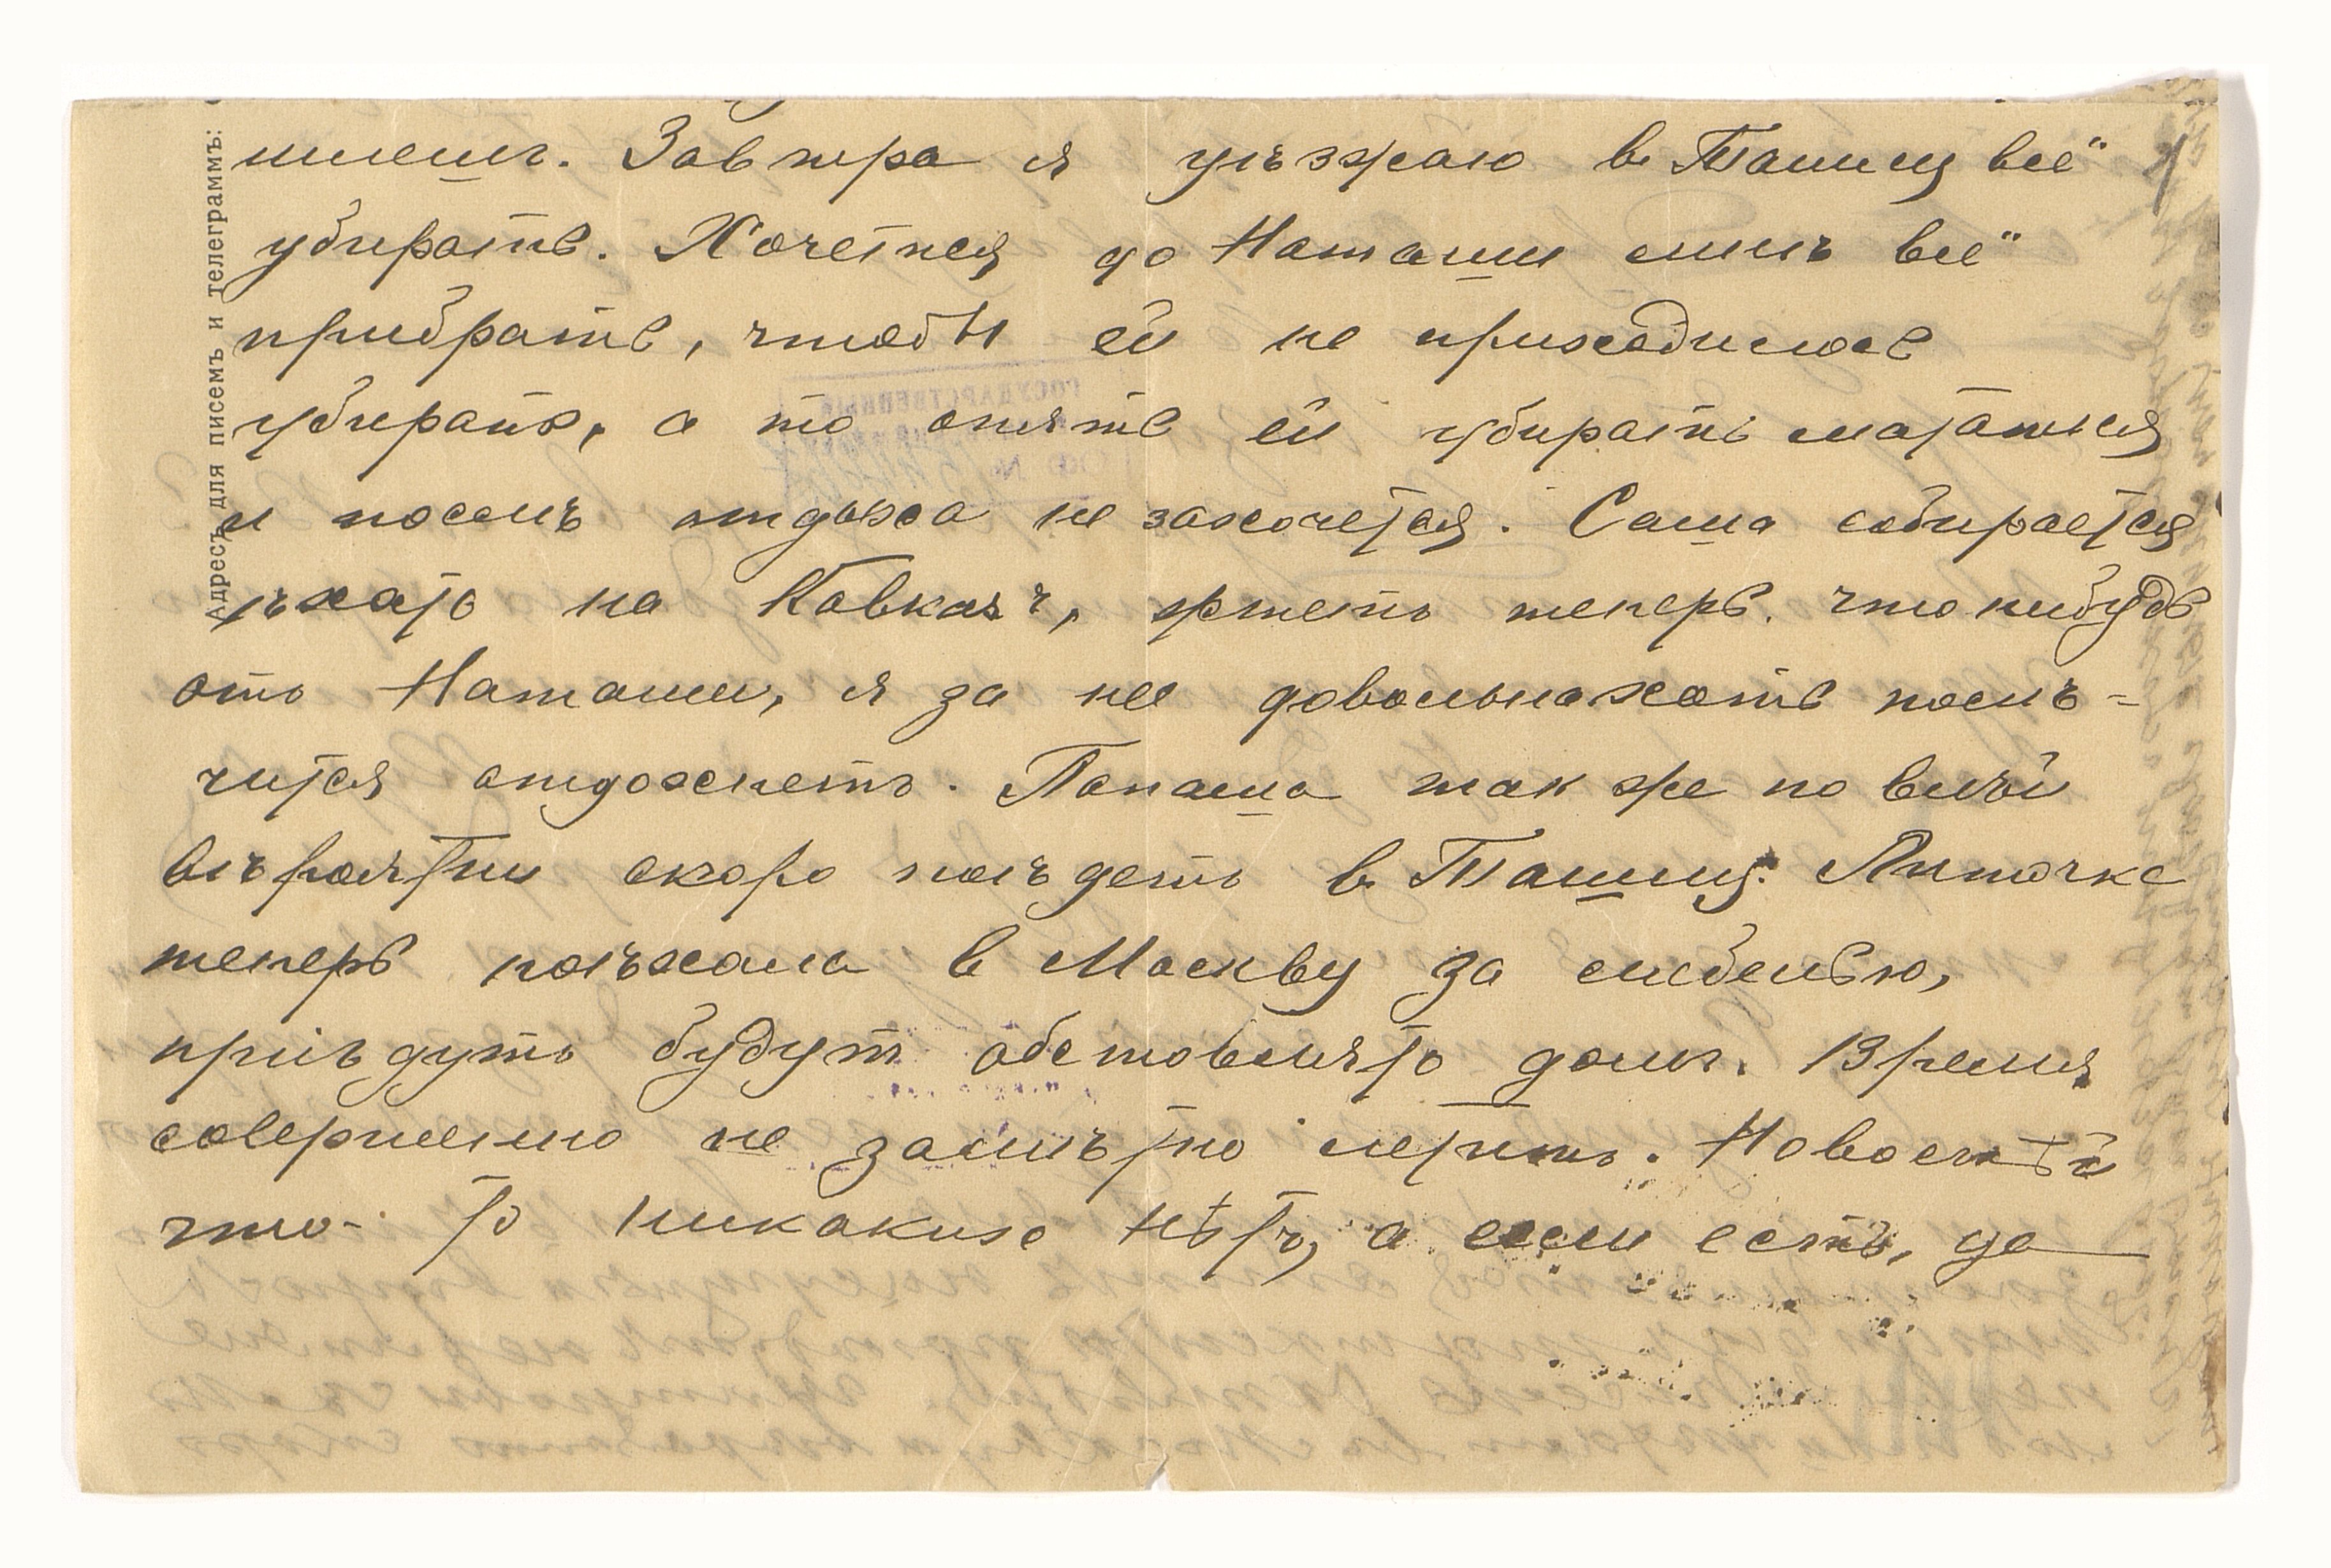 Адресъ для писемъ и телеграммъ:
пишешь. Завтра я уѣзжаю в Ташиц всё
убирать. Хочется до Наташи мнѣ всё
прибрать, чтобы ей не приходилось
убирать, а то опять ей убирать
и послѣ отдыха не захочется. Саша собирается
ѣхать на Кавказъ, ждетъ теперь что нибудь
отъ Наташи, я за нее довольна хоть полѣ-
чится отдохнетъ. Папаша так же по всей
вѣроятни скоро поѣдетъ в Ташиц.
теперь поѣхала в Москву за мебелью,
пріѣдутъ будут обстовлять домъ. Время
совершенно не замѣтно летитъ. Новостѣй
что-то никакихъ нѣтъ, а если есть, да